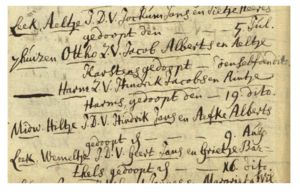 Leek Aeltje J.D.V. Jockum Jans en Sietje Heeres
gedoopt den — 5 Jul.
7huisen Ottho Z.V. Jacob Alberts en Aeltje
Karstens gedoopt —
Harm Z.V. Hindrik Jacobs en Auntje
Harms, gedoopt den — 19 dito.
Midw. Hiltje J.D.V. Hindrik Jans en Aefke Alberts
gedoopt — 9. Aug
Leek. Wemeltje J.D.V. Geert Jans en Grietje Bar-
thels gedoopt — 16. dit.
Margriet